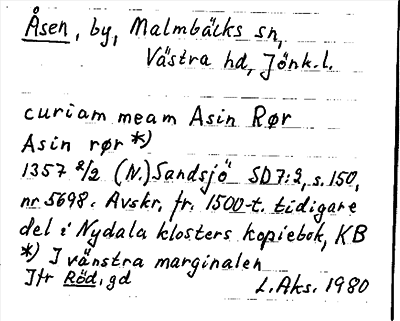 Åsen, by, Malmbäcks sn,
Västra hd, Jönk.l.
curiam meam Asin Rør
Asin rør *)
1357 2/2 (N.) Sandsjö SD7:2, s.150,
nr 5698. Avskr. fr. 1500-t. tidigare
del i Nydala klosters kopiebok, KB
*) I vänstra marginalen
Jfr Röd, gd L.Aks. 1980